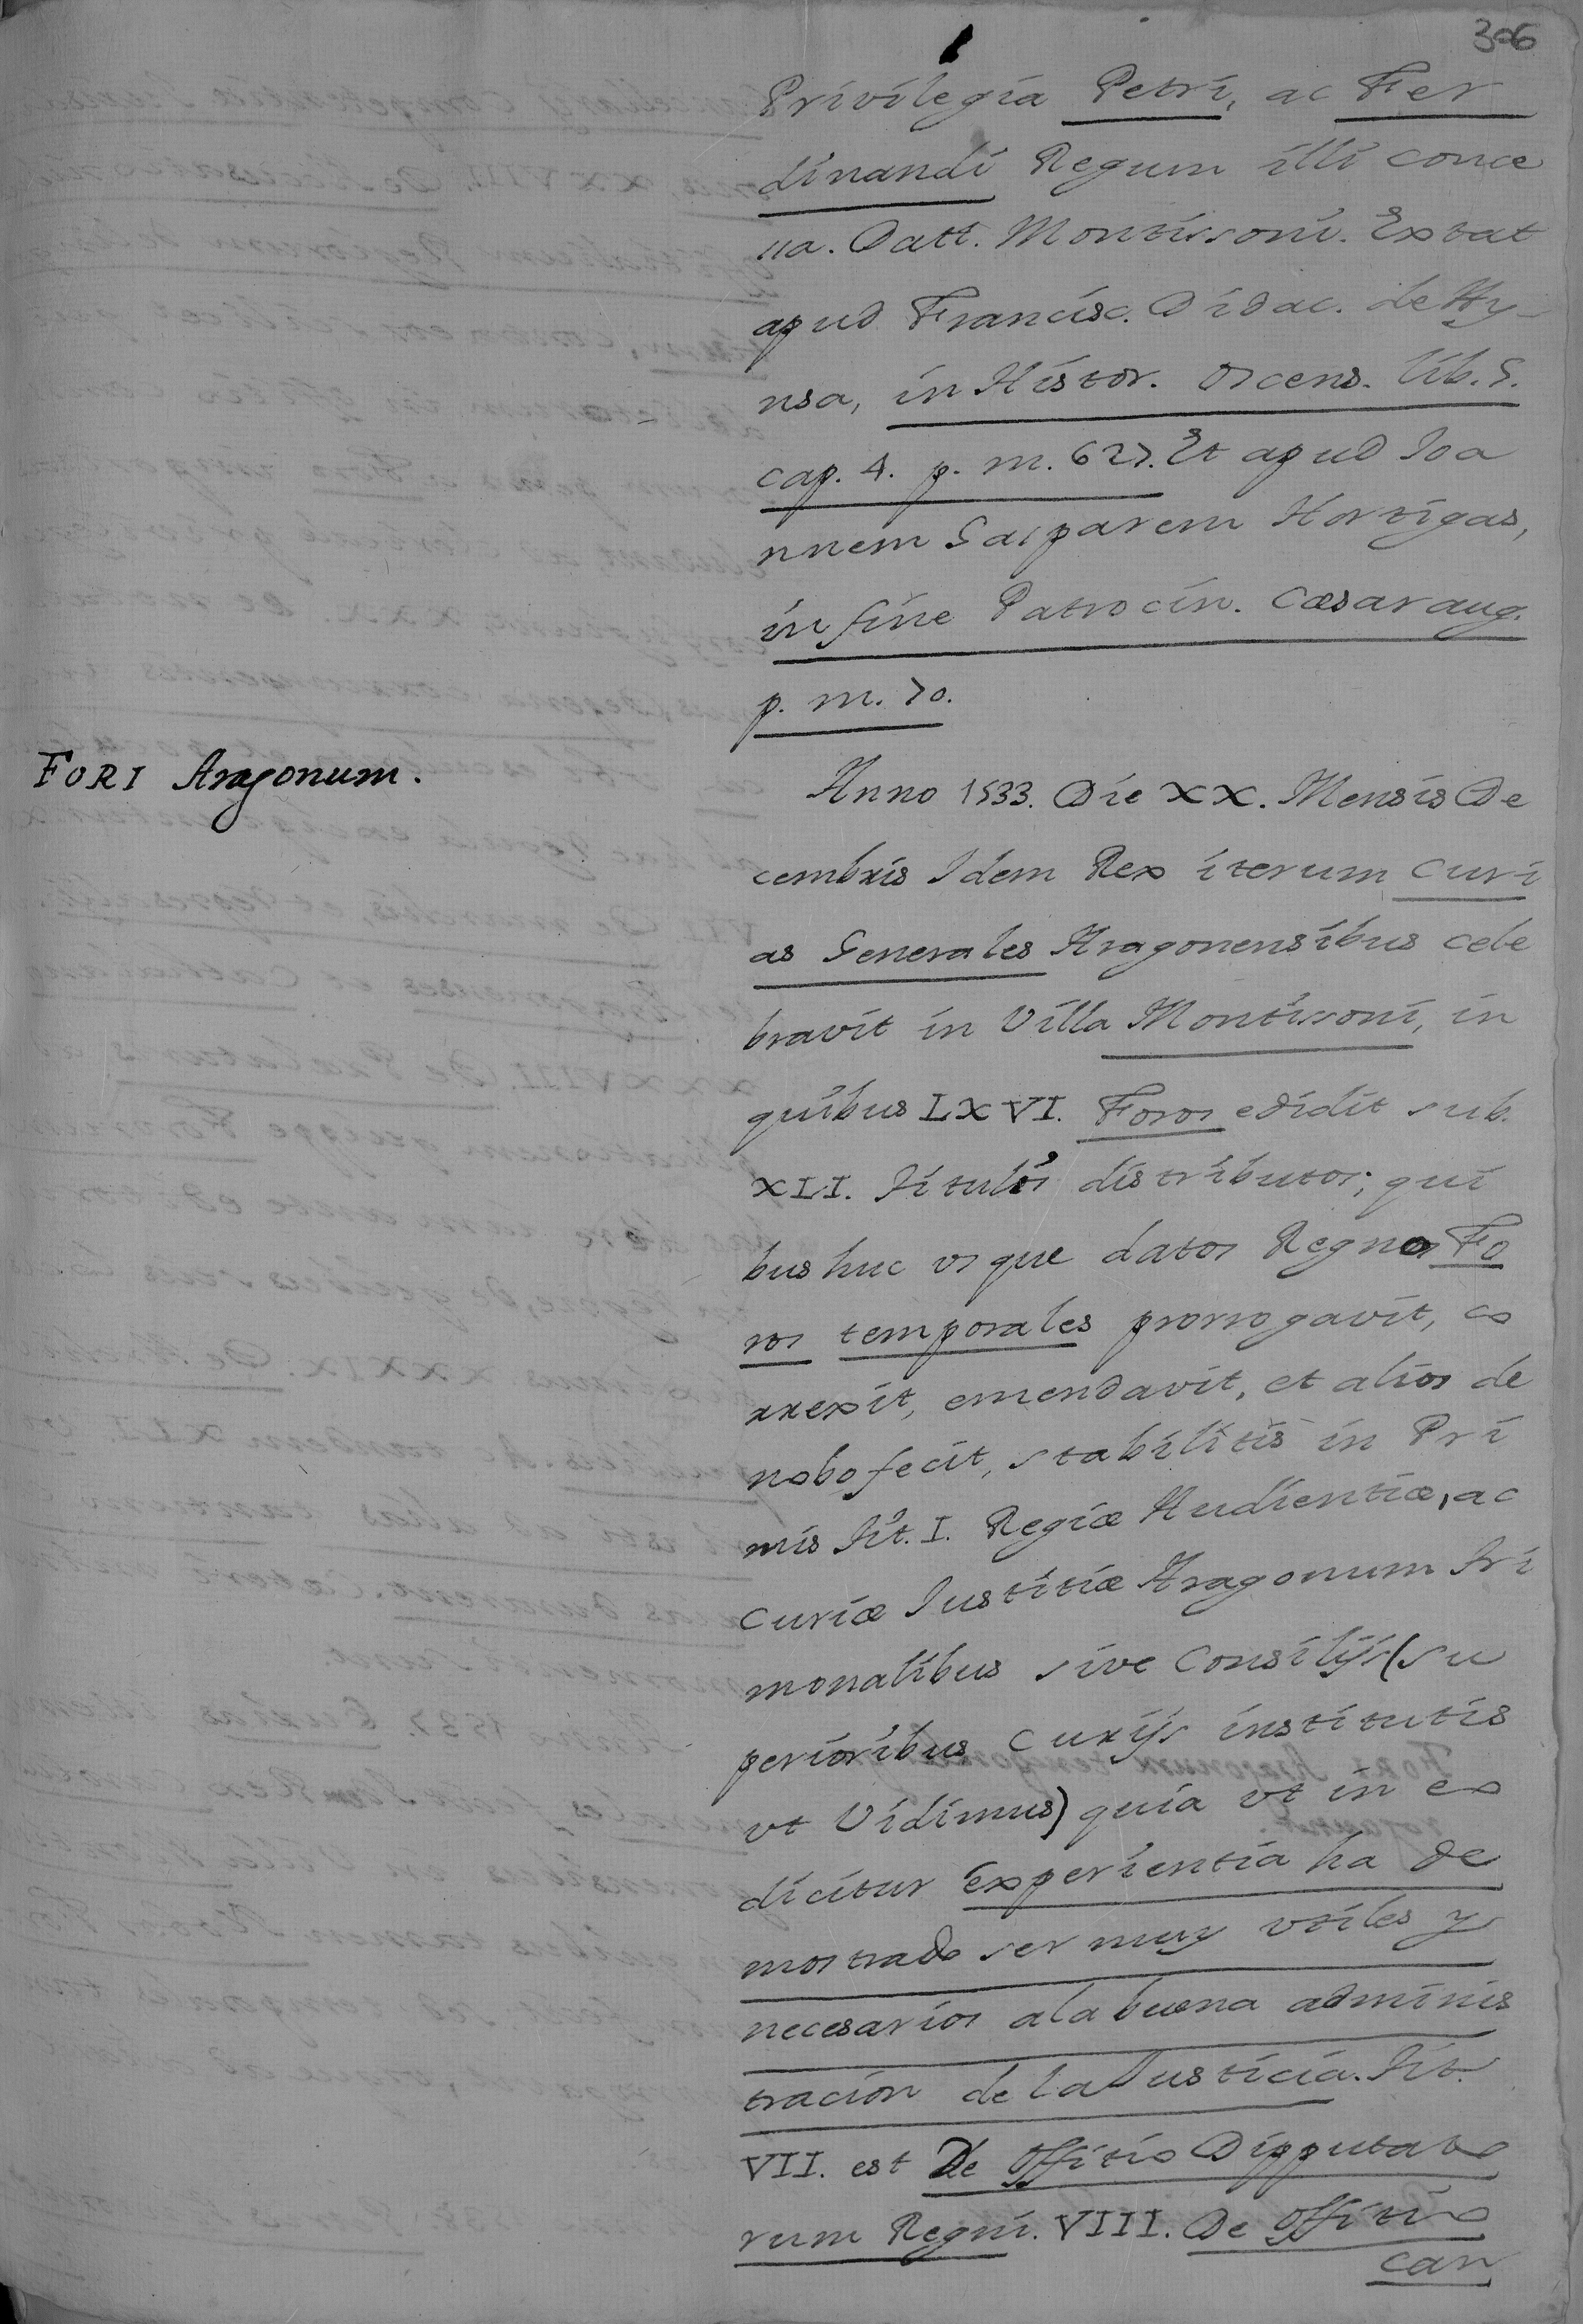 306
Privilegia Petri, ac Fer
dinandi Regum illi conce
ssa. Datt. Montissoni. Extat
apud Francisc. Didac. de Ay-
nsa, in Histor. Oscens. lib. 5.
cap. 4. p. m. 627. Et apud Ioa
nnem Gasparem Hortigas,
in fine Patrocin. Cæsaraug.
p. m. 70.
FORI Aragonum.
Anno 1533. Die XX. Mensis De
cembris Idem Rex iterum Curi
as Generales Aragonensibus cele
bravit in Villa Montissoni, in
quibus LXVI. Foros edidit sub.
XLI. Titulis distributos; qui
bus huc usque datos Regnos Fo
ros temporales prorrogavit, co
rrexit, emendavit, et alios de
nobo fecit, stabilitis in Pri
mis Tit. I. Regiæ Audientiæ, ac
Curiæ Iustitiæ Aragonum Tri
monalibus sive Consilijs (su
perioribus Curijs institutis
vt Vidimus) quia vt in eo
dicitur Experientia ha de
mostrado ser muy vtiles y
necesarios ala buena adminis
tracion de la Justicia. Tit.
VII. est De Offitio Dipputato
rum Regni. VIII. De Offitio
can